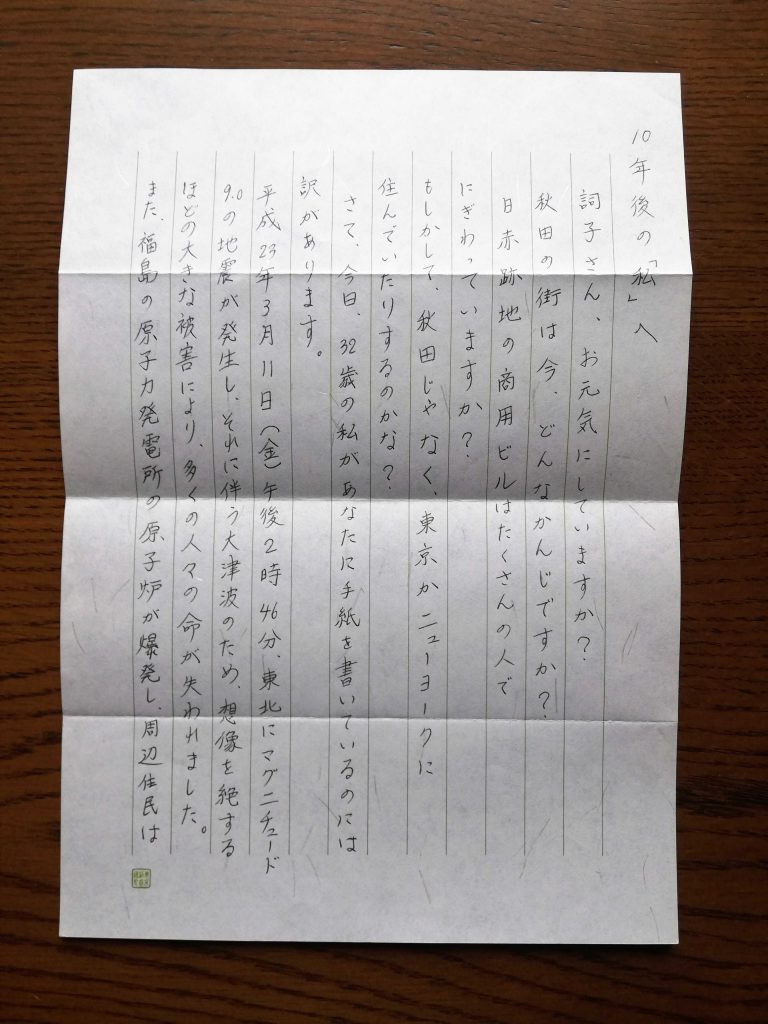 10年後の「私」へ
詞子さん、お元気にしていますか?
秋田の街は今、どんなかんじですか?
日赤跡地の商用ビルはたくさんの人で
にぎわっていますか?
もしかして、秋田じゃなく、東京かニューヨークに
住んでいたりするのかな?
さて、今日、32歳の私があなたに手紙を書いているのには
訳があります。
平成23年3月11日(金)午後2時46分、東北にマグニチュード
9.0の地震が発生し、それに伴う大津波のため、想像を絶する
ほどの大きな被害により、多くの人々の命が失われました。
また、福島の原子力発電所の原子炉が爆発し、周辺住民は